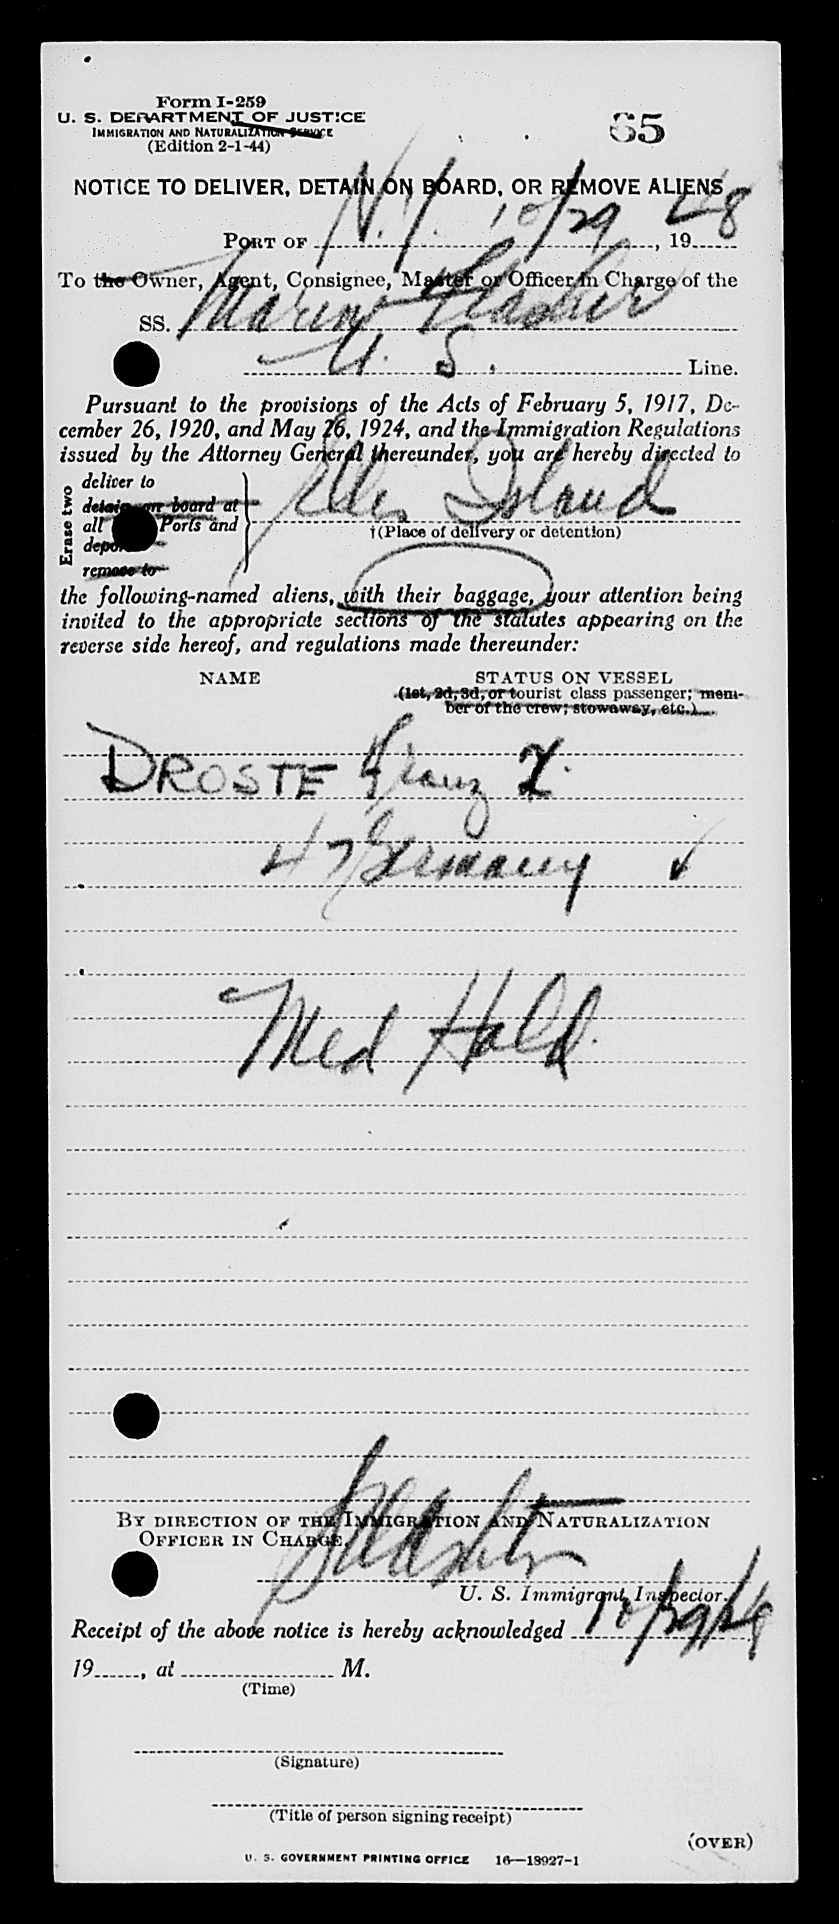 Form I-259
U. S. DEPARTMENT OF JUSTICE
IMMIGRATION AND NATURALIZATION SERVICE
(Edition 2-1-44)
65
NOTICE TO DELIVER, DETAIN ON BOARD, OR REMOVE ALIENS
PORT OF N.Y. 10/29, 1948
To the Owner, Agent, Consignee, Master or Officer in Charge of the
SS. Marine Flasher
U. S. Line.
Pursuant to the provisions of the Acts of February 5, 1917, De-
cember 26, 1920, and May 26, 1924, and the Immigration Regulations
issued by the Attorney General thereunder, you are hereby directed to
Erase two
deliver to
detain on board at
all Ports and
deport
remove to
Ellis Island
†(Place of delivery or detention)
the following-named aliens, with their baggage, your attention being
invited to the appropriate sections of the statutes appearing on the
reverse side hereof, and regulations made thereunder:
NAME STATUS ON VESSEL
(1st, 2d, 3d, or tourist class passenger; mem-
ber of the crew; stowaway, etc.)
DROSTE Franz X.
47 Germany ✓
Med Hold.
BY DIRECTION OF THE IMMIGRATION AND NATURALIZATION
OFFICER IN CHARGE.
U. S. Immigrant Inspector.
Receipt of the above notice is hereby acknowledged 10/29/48
19......, at ...................... M.
(Time)
(Signature)
(Title of person signing receipt)
(OVER)
U. S. GOVERNMENT PRINTING OFFICE 16—18927-1